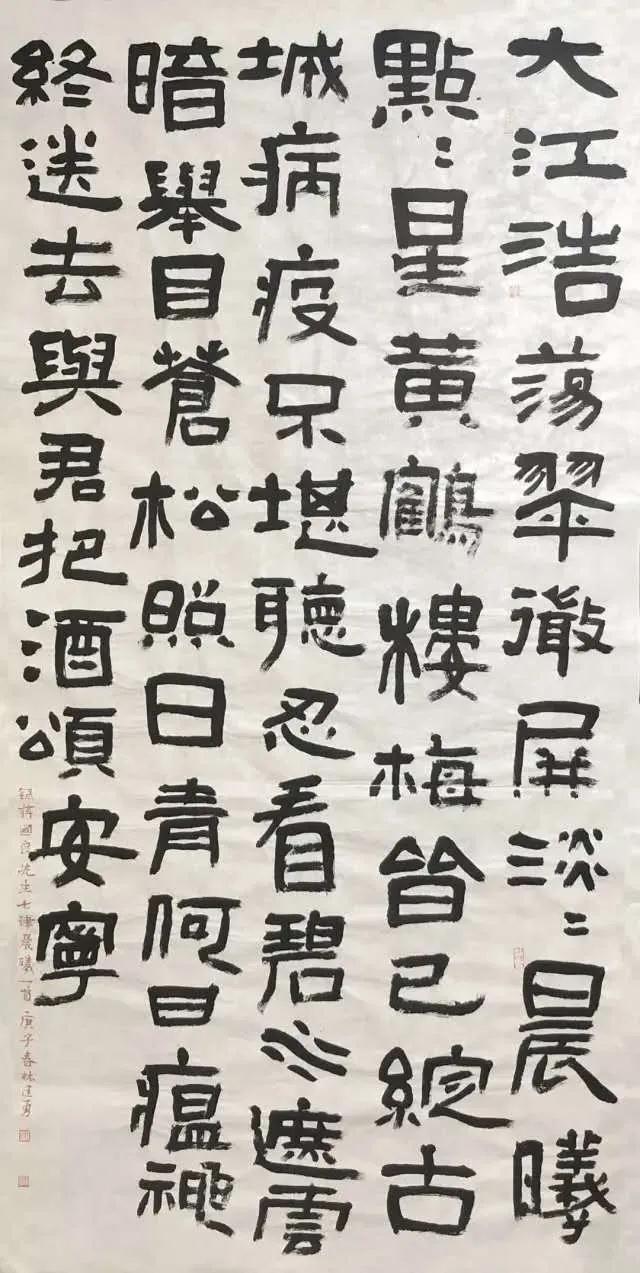 大江浩蕩翠徹屏淡〻晨曦
點〻星黄鶴樓梅皆已綻古
城病疫不堪聽忍看碧水遮雲
暗舉目蒼松照日青何日瘟神
終送去與君把酒頌安寧
録蔣國良先生七律晨曦一首 庚子春林建勇